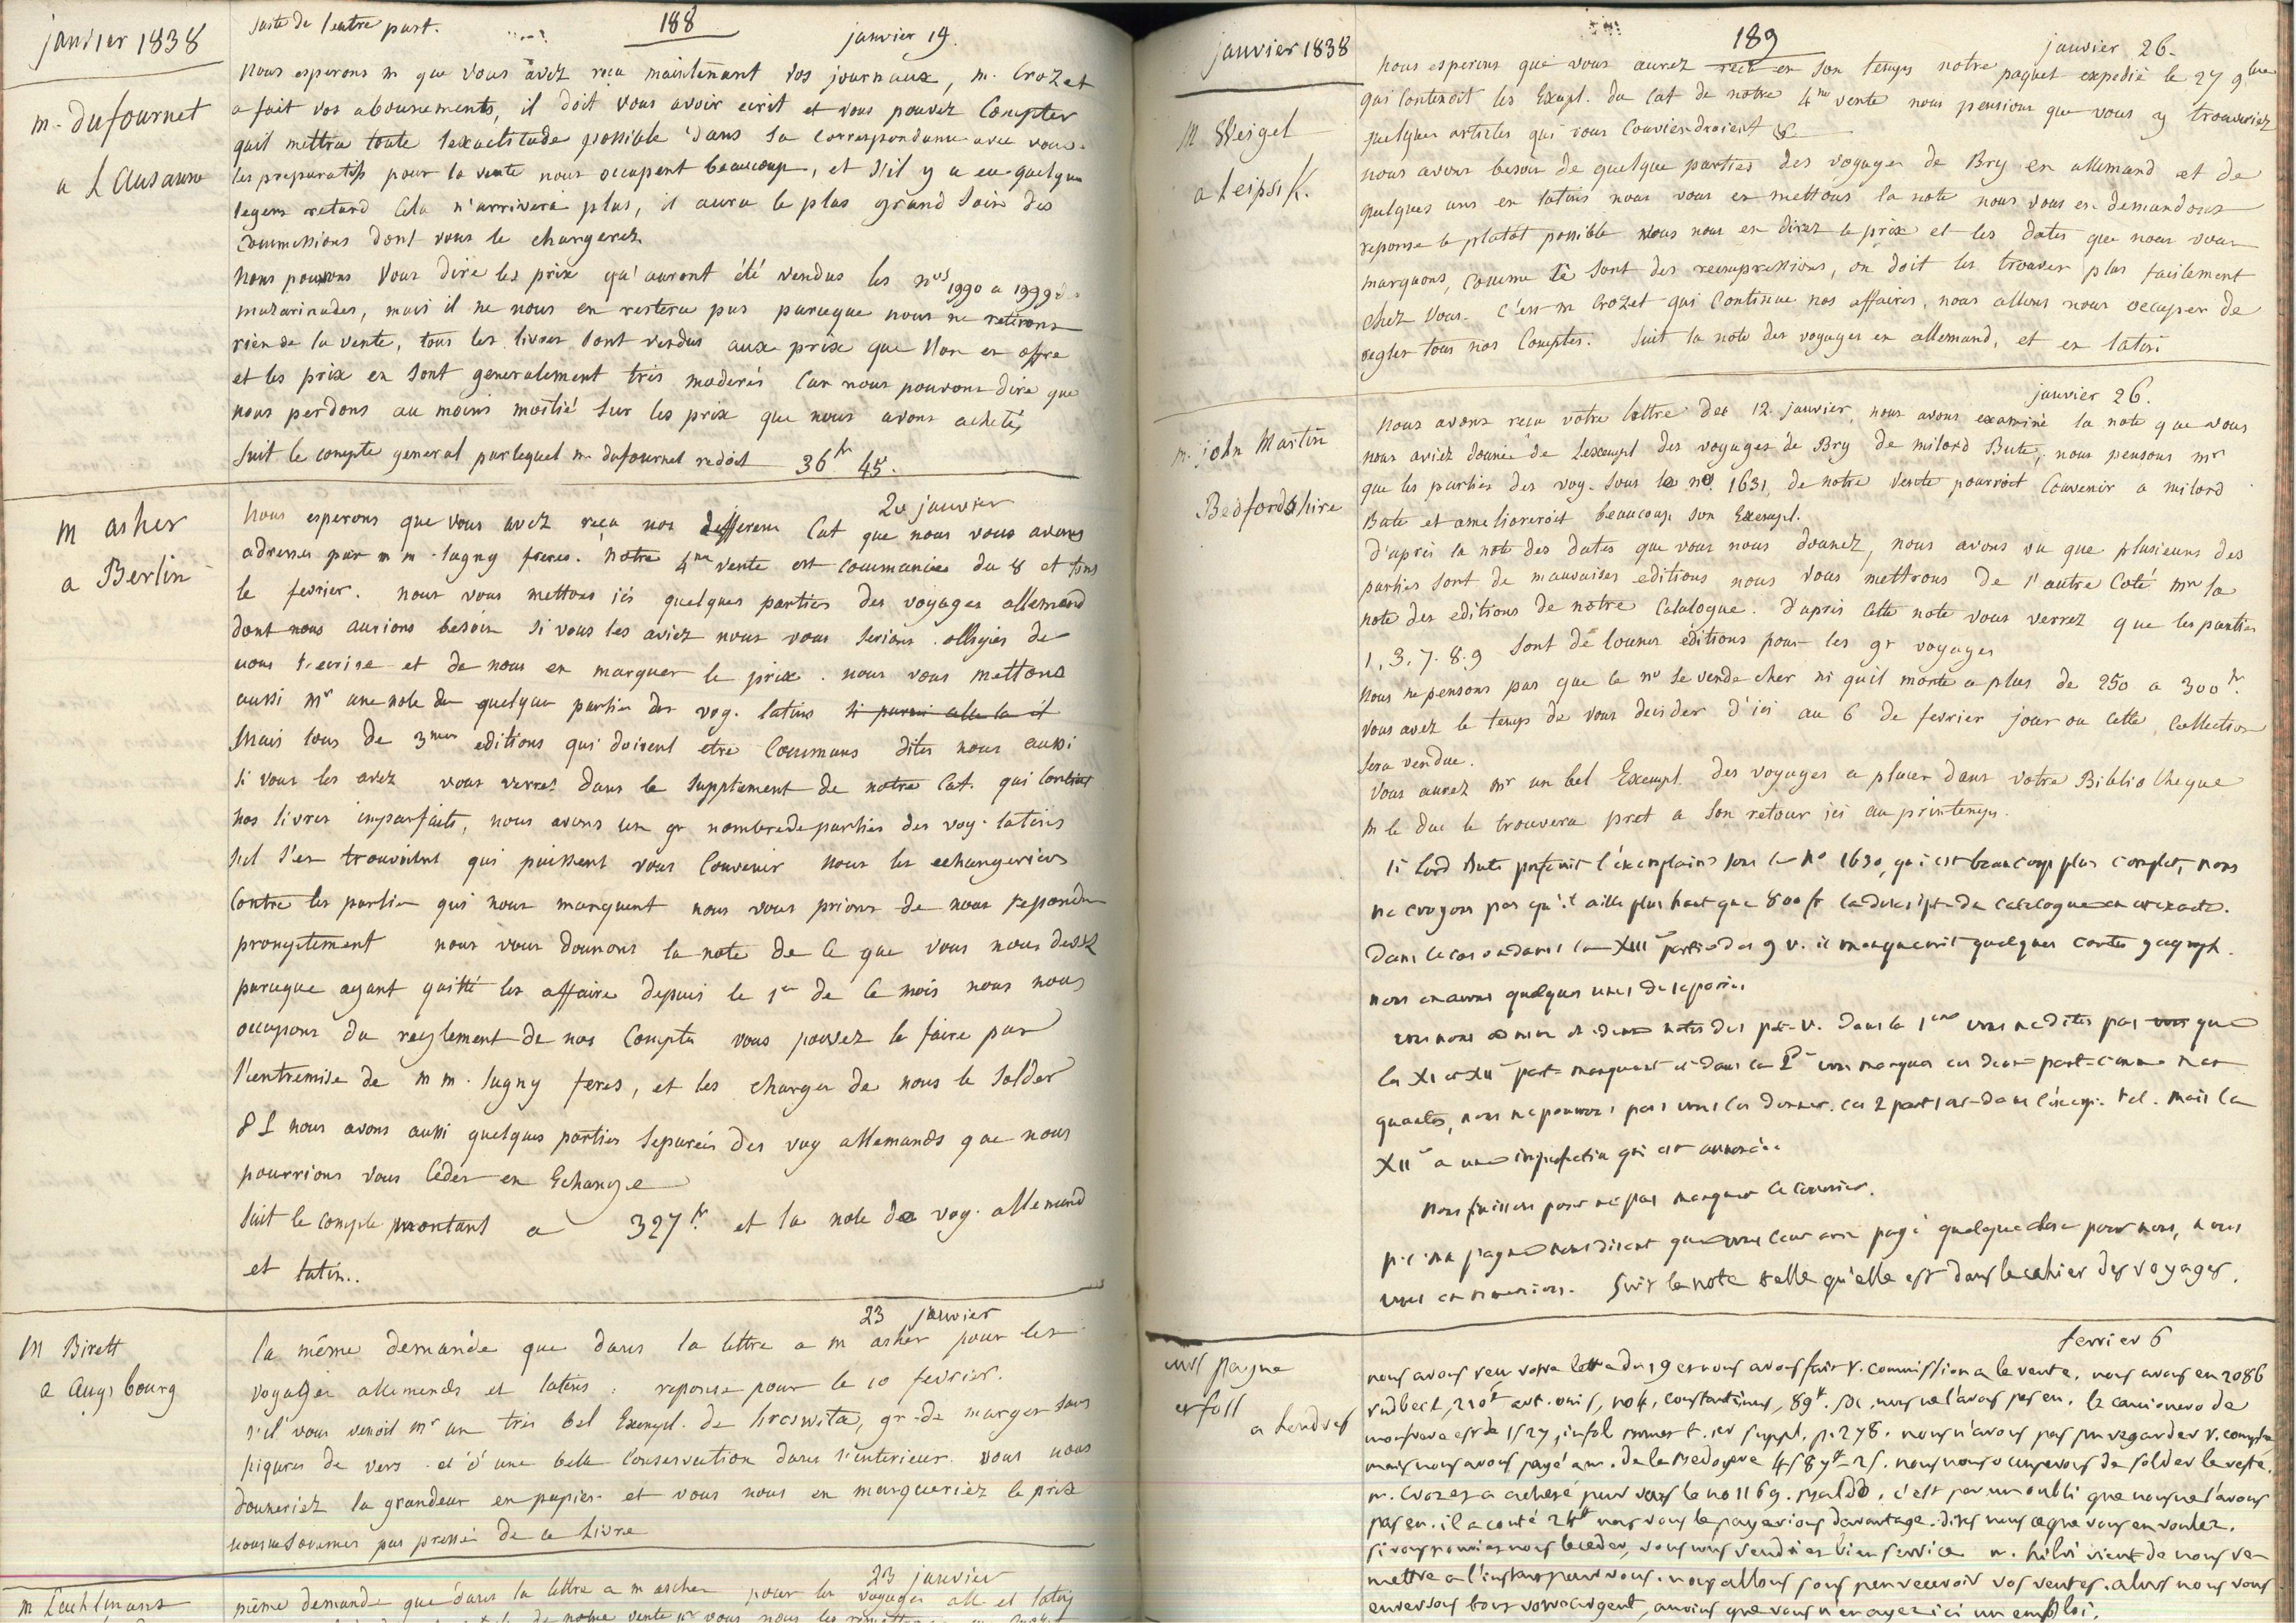 janvier 1838
suite de l'autre part.
188
janvier 19.
m. dufournet
a Lausanne
nous esperons m que vous avez reçu maintenant vos journaux, m. Crozet
a fait vos abonnements, il doit vous avoir ecrit et vous pouvez compter
quil mettra toute lexactitude possible dans sa correspondance avec vous.
les preparatifs pour la vente nous occupent beaucoup, et s'il y a eu quelque
legers retard cela n'arrivera plus, il aura le plus grand soin des
commissions dont vous le chargerez.
nous pouvons vous dire les prix qu'auront été vendus les nos 1990 a 1999
mazarinades, mais il ne nous en restera pas parceque nous ne retirons
rien de la vente, tous les livres sont vendus aux prix que l'on en offre
et les prix en sont generalement tres moderés car nous pouvons dire que
nous perdons au moins moitié sur les prix que nous avons achetés
suit le compte general par lequel m. dufournet redoit 36 fr 45.
m asher
a Berlin
20 janvier
nous esperons que vous avez reçu nos differens cat que nous vous avons
adresses par m m. Jugny freres. notre 4me vente est commancée du 8 et fini
le fevrier. nous vous mettons ici quelques parties des voyages allemand
dont nous aurions besoin si vous les aviez nous vous serions obligés de
nous l'ecrire et de nous en marquer le prix. nous vous mettons
aussi mr une note de quelques parties des voy. latins
mais tous de 3mes editions qui doivent etre communs dites nous aussi
si vous les avez vous verrez dans le supplement de notre cat. qui contient
nos livres imparfaits, nous avons un gr nombre de parties des voy. latins
sil s'en trouvoient qui puissent vous convenir nous les echangerions
contre les parties qui nous manquent nous vous prions de nous repondre
promptement nous vous donnons la note de ce que vous nous devez
parceque ayant quitté les affaire depuis le 1er de ce mois nous nous
occupons du reglement de nos comptes vous pouvez le faire par
l'entremise de m m. Jugny feres, et les charger de nous le solder
P S nous avons aussi quelques parties separées des voy allemands que nous
pourrions vous ceder en Echange
suit le compte montant a 327 fr. et la note des voy. allemand
et latin..
m Birett
a augsbourg
23 janvier
la même demande que dans la lettre a m asher pour les
voyages allemands et latins : reponse pour le 10 fevrier.
s'il vous venoit mr un tres bel Exempl. de hroswita, gr. de marges sans
piqures de vers et d'une belle conservation dans l'interieur vous nous
donneriez la grandeur en papier et vous nous en marqueriez le prix
nous ne sommes pas pressés de ce livre
m
23 janvier
même demande que dans la lettre a m ascher pour les voyages all et latins
janvier 1838
189
janvier 26.
M Weigel
a Leipsik.
nous esperons que vous aurez reçu en son temps notre paquet expedié le 27 9bre
qui contenoit les Exempl. du cat de notre 4me vente nous pensions que vous y trouveriez
quelques articles qui vous conviendroient &c
nous avons besoin de quelque parties des voyages de Bry en allemand et de
quelques uns en latins nous vous en mettons la note nous vous en demandons
reponse le plutot possible vous nous en direz le prix et les dates que nous vous
marquons, comme ce sont des reimpressions, on doit les trouver plus facilement
chez vous. c'est m Crozet qui continue nos affaires, nous allons nous occuper de
regler tous nos comptes. suit la note des voyages en allemand, et en latin
janvier 26.
m. john Martin
Bedfordshire
nous avons reçu votre lettre des 12 janvier, nous avons examiné la note que vous
nous aviez donnée de lexempl des voyages de Bry de milord Bute, nous pensons mr
que les parties des voy. sous le no. 1631, de notre vente pourroit convenir a milord
Bute et amelioreroit beaucoup son Exempl.
d'apres la note des dates que vous nous donnez, nous avons vu que plusieurs des
parties sont de mauvaises editions nous vous mettrons de l'autre coté mr la
note des editions de notre catalogue. d'apres cette note vous verrez que les parties
1. 3. 7. 8. 9 sont de bonnes éditions pour les gr voyages
nous ne pensons pas que le no se vende cher ni quil monte a plus de 250 a 300 fr.
vous avez le temps de vous decider d'ici au 6 de fevrier jour ou cette collection
sera vendue.
vous aurez mr un bel Exempl. des voyages a placer dans votre Bibliotheque
m le duc le trouvera pret a son retour ici au printemps.
si Lord Bute preferoit l'exemplaire sous le no 1630, qui est beaucoup plus complet, nous
ne croyons pas qu'il aille plus haut que 800 fr la descript. du catalogue en est exacte.
Dans le cas ou dans la XIII partie des g v. il manqueroit quelques cartes geograph.
nous en avons quelques unes de separées
vous nous donnez deux notes des pet. v. Dans la 1ere vous ne dites pas que
les XI et XII part. manquent et dans la 2e vous marquez ces deux part. comme
nous ne pouvons pas vous les donner. ces 2 part. dans l'exemp. mais la
XIIe a une imperfection qui est annoncée
nous finissons pour ne pas manquer le courrier.
p.s. mm payne nous disent que vous leur avez payé quelque chose pour nous, nous
vous en remercions. Suit la note telle qu'elle est dans le cahier des voyages.
fevrier 6
mrs payne
et foss
a Londres
nous avons reçu votre lettre du 19 et nous avons fait v. commission a la vente. nous avons eu 2086
rudbeck, 210 fr constantinus, 89 fr. nous ne l'avons pas eu. le cancionero de
est de 1527, infol suppl. p. 278. nous n'avons pas pu regarder v. compte
mais nous avons payé a m. de la Bedoyere nous nous occuperons de solder le reste.
m. Crozet a acheté pour vous le no 1169. c'est par un oubli que nous ne l'avons
pas eu. il a couté 24 fr nous vous le payerions davantage. dites nous ce que vous en voulez.
si vous pouviez nous le ceder, vous nous rendriez bien service m. vient de nous re-
mettre a l'instant pour vous. nous allons sous peu recevoir vos rentes. alors nous vous
enverrons tout votre argent, a moins que vous n'en ayez ici un emploi.